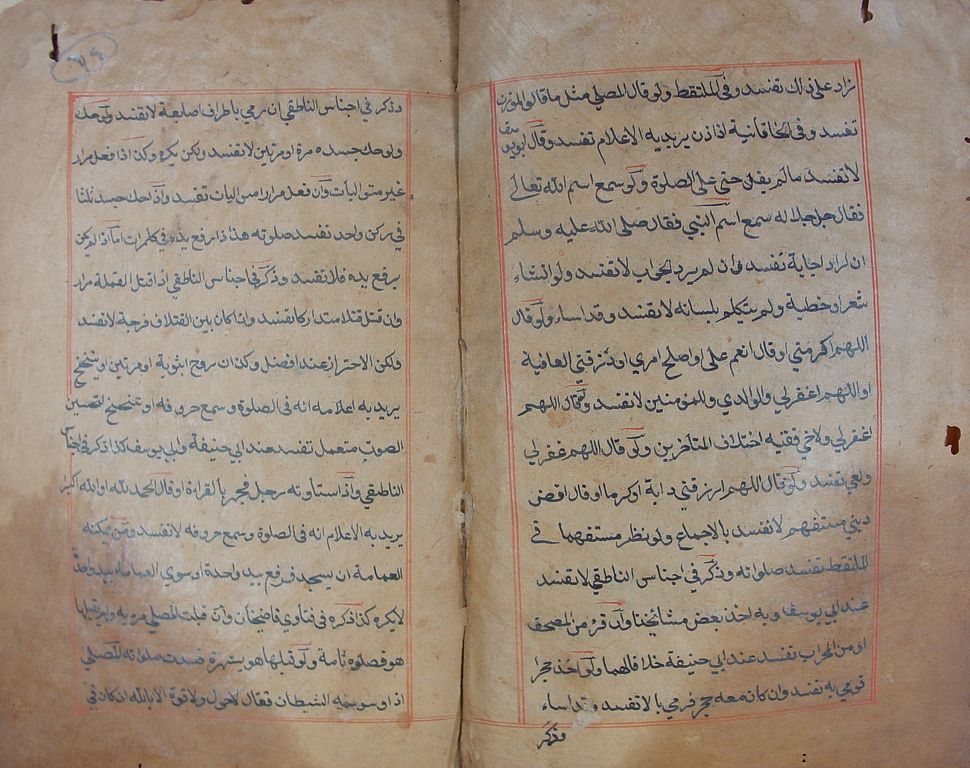 زاد على ذلك تفسد وفى الملتقط ولو قال المصلي مثل ما قال المؤذن
تفسد وفى الخاقانية اذا اذن يريد به الاعلام تفسد وقال ابو يوسف
لا تفسد مالم يقل حي على الصلوة ولو سمع اسم الله تعالى
فقال جل جلاله سمع اسم النبي فقال صلى الله عليه وسلم
ان اراد اجابة تفسد وان لم يرد الجواب لا تفسد ولو انشاء
شعرا وخطبة ولم يتكلم بلسانه لا تفسد وقد اساء ولو قال
اللهم اكرمني او قال انعم على او اصلح امري او ارزقني العافية
او اللهم اغفر لي ولوالدي وللمؤمنين لا تفسد ولو قال اللهم
اغفر لي ولاخي ففيه اختلاف المتأخرين ولو قال اللهم اغفر لي
ولعمي تفسد ولو قال اللهم ارزقني دابة او كرما او قال اقض
ديني تفسد لا تفسد بالاجماع ولو نظر مستفهما في
الملتقط تفسد صلواته وذكر في اجناس الناطقي لا تفسد
عند ابي يوسف وبه اخذ بعض مشائخنا وان قرء من المصحف
او من المحراب تفسد عند ابي حنيفة خلافا لهما ولو اخذ حجرا
فرمي به تفسد وان كان معه حجر فرمي بالا تفسد وقد اساء
وذكر
٧٤
وذكر في اجناس الناطقي ان رمي باطراف اصابعه لا تفسد ولو حك
ولو حك جسده مرة او مرتين لا تفسد ولكن يكره وكذا اذا فعل مرارا
غير متواليات وان فعل مرارا متواليات تفسد واذا حك جسده ثلثا
في ركن واحد تفسد صلوته هذا اذا رفع يده في كل مرات اما اذا لم يكن
يرفع يده فلا تفسد وذكر فى اجناس الناطقي اذا قتل القملة مرارا
وان قتل قتلا متداركا تفسد واذا كان بين القتلات فرجة لا تفسد
ولكن الاحتراز عنه افضل وكذا ان روح بثوبه او مرتين او تنحنح
يريد به اعلامه انه فى الصلوة وسمع حروفه او تنحنح لتحسين
الصوت متعمدا تفسد عند ابي حنيفة وابي يوسف كذا ذكر في اجناس
الناطقي واذا استاذنه رجل فجهر بالقراءة او قال الحمد لله او الله اكبر
يريد به الاعلام انه فى الصلوة وسمع حروفه لا تفسد ومن يمكنه
العمامة ان يسجد فرفع بيد واحدة او سوى العمامة بيد واحدة
لا يكره كذا ذكره فى فتاوي قاضيخان وان قبلت المصلي مرءة ولم يقبلها
هو فصلوته تامة ولو قبلها هو بشهوة فسدت صلواته المصلي
اذا وسوسه الشيطان فقال لا حول ولا قوة الا بالله ان كان في